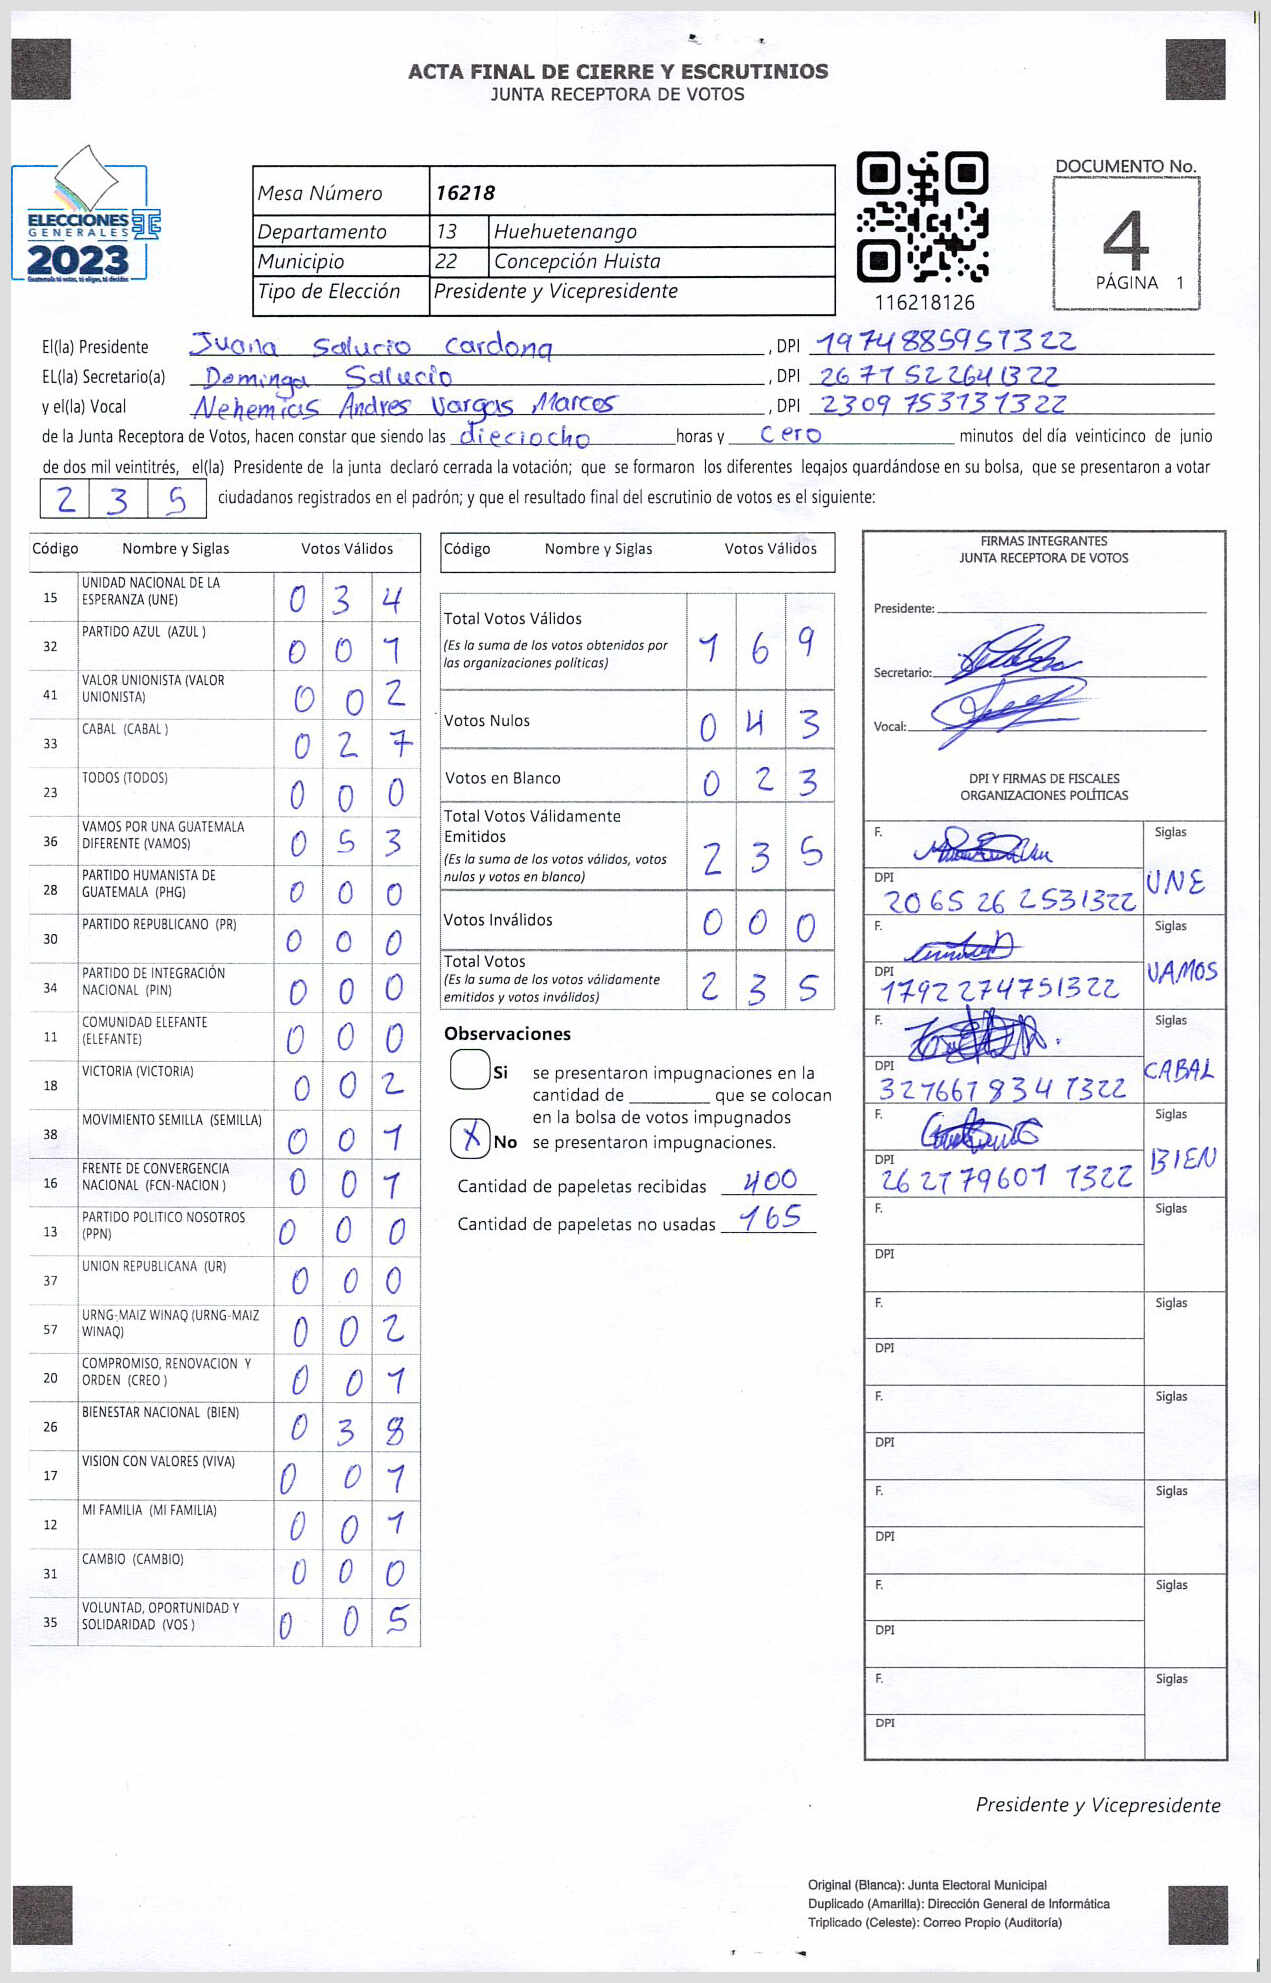 ACTA FINAL DE CIERRE Y ESCRUTINIOS
JUNTA RECEPTORA DE VOTOS
ELECCIONES
GENERALES
2023
Guatemala tú votas, tú eliges, tú decides
Mesa Número 16218
Departamento 13 Huehuetenango
Municipio 22 Concepción Huista
Tipo de Elección Presidente y Vicepresidente
116218126
DOCUMENTO No.
4
PÁGINA 1
El(la) Presidente Juana Salucio Cardona , DPI 1974885951322
EL(la) Secretario(a) Dominga Salucio , DPI 2671522641322
y el(la) Vocal Nehemias Andres Vargas Marcos , DPI 2309753131322
de la Junta Receptora de Votos, hacen constar que siendo las dieciocho horas y cero minutos del día veinticinco de junio
de dos mil veintitrés, el(la) Presidente de la junta declaró cerrada la votación; que se formaron los diferentes legajos guardándose en su bolsa, que se presentaron a votar
235 ciudadanos registrados en el padrón; y que el resultado final del escrutinio de votos es el siguiente:
Código Nombre y Siglas Votos Válidos
15 UNIDAD NACIONAL DE LA ESPERANZA (UNE) 034
32 PARTIDO AZUL (AZUL ) 001
41 VALOR UNIONISTA (VALOR UNIONISTA) 002
33 CABAL (CABAL ) 027
23 TODOS (TODOS) 000
36 VAMOS POR UNA GUATEMALA DIFERENTE (VAMOS) 053
28 PARTIDO HUMANISTA DE GUATEMALA (PHG) 000
30 PARTIDO REPUBLICANO (PR) 000
34 PARTIDO DE INTEGRACIÓN NACIONAL (PIN) 000
11 COMUNIDAD ELEFANTE (ELEFANTE) 000
18 VICTORIA (VICTORIA) 002
38 MOVIMIENTO SEMILLA (SEMILLA) 001
16 FRENTE DE CONVERGENCIA NACIONAL (FCN-NACION ) 001
13 PARTIDO POLITICO NOSOTROS (PPN) 000
37 UNION REPUBLICANA (UR) 000
57 URNG-MAIZ WINAQ (URNG-MAIZ WINAQ) 002
20 COMPROMISO, RENOVACION Y ORDEN (CREO ) 001
26 BIENESTAR NACIONAL (BIEN) 038
17 VISION CON VALORES (VIVA) 001
12 MI FAMILIA (MI FAMILIA) 001
31 CAMBIO (CAMBIO) 000
35 VOLUNTAD, OPORTUNIDAD Y SOLIDARIDAD (VOS ) 005
Código Nombre y Siglas Votos Válidos
Total Votos Válidos 169
(Es la suma de los votos obtenidos por
las organizaciones políticas)
Votos Nulos 043
Votos en Blanco 023
Total Votos Válidamente
Emitidos 235
(Es la suma de los votos válidos, votos
nulos y votos en blanco)
Votos Inválidos 000
Total Votos 235
(Es la suma de los votos válidamente
emitidos y votos inválidos)
Observaciones
Si se presentaron impugnaciones en la
cantidad de ________ que se colocan
en la bolsa de votos impugnados
X No se presentaron impugnaciones.
Cantidad de papeletas recibidas 400
Cantidad de papeletas no usadas 165
FIRMAS INTEGRANTES
JUNTA RECEPTORA DE VOTOS
Presidente:
Secretario:
Vocal:
DPI Y FIRMAS DE FISCALES
ORGANIZACIONES POLÍTICAS
F. Siglas
DPI 2065262531322 UNE
F. Siglas
DPI 1792274751322 VAMOS
F. Siglas
DPI 3276678341322 CABAL
F. Siglas
DPI 2621796011322 BIEN
F. Siglas
DPI
F. Siglas
DPI
F. Siglas
DPI
F. Siglas
DPI
F. Siglas
DPI
F. Siglas
DPI
Presidente y Vicepresidente
Original (Blanca): Junta Electoral Municipal
Duplicado (Amarilla): Dirección General de Informática
Triplicado (Celeste): Correo Propio (Auditoría)